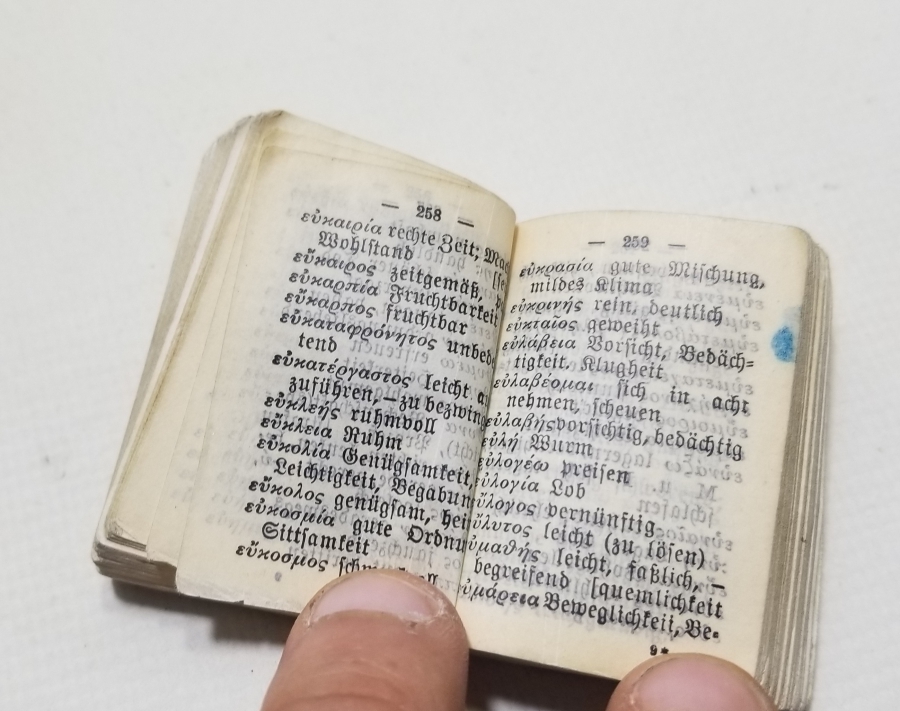 — 258 —
εὐκαιρία rechte Zeit;
Wohlstand
εὔκαιρος zeitgemäß,
εὐκαρπία Fruchtbarkeit
εὔκαρπος fruchtbar
εὐκαταφρόνητος
tend
εὐκατέργαστος leicht
zuführen, – zu
εὐκλεής ruhmvoll
εὔκλεια Ruhm
εὐκολία Genügsamkeit,
Leichtigkeit,
εὔκολος genügsam,
εὐκοσμία gute
Sittsamkeit
εὔκοσμος
— 259 —
εὐκρασία gute Mischung,
mildes Klima
εὐκρινής rein, deutlich
εὐκταῖος geweiht
εὐλάβεια Vorsicht, Bedäch=
tigkeit, Klugheit
εὐλαβέομαι sich in acht
nehmen, scheuen
εὐλαβής vorsichtig, bedächtig
εὐλή Wurm
εὐλογέω preisen
εὐλογία Lob
εὔλογος vernünftig
εὔλυτος leicht (zu lösen)
εὐμαθής leicht, faßlich, –
begreifend [quemlichkeit
εὐμάρεια Beweglichkeit, Be-
9*